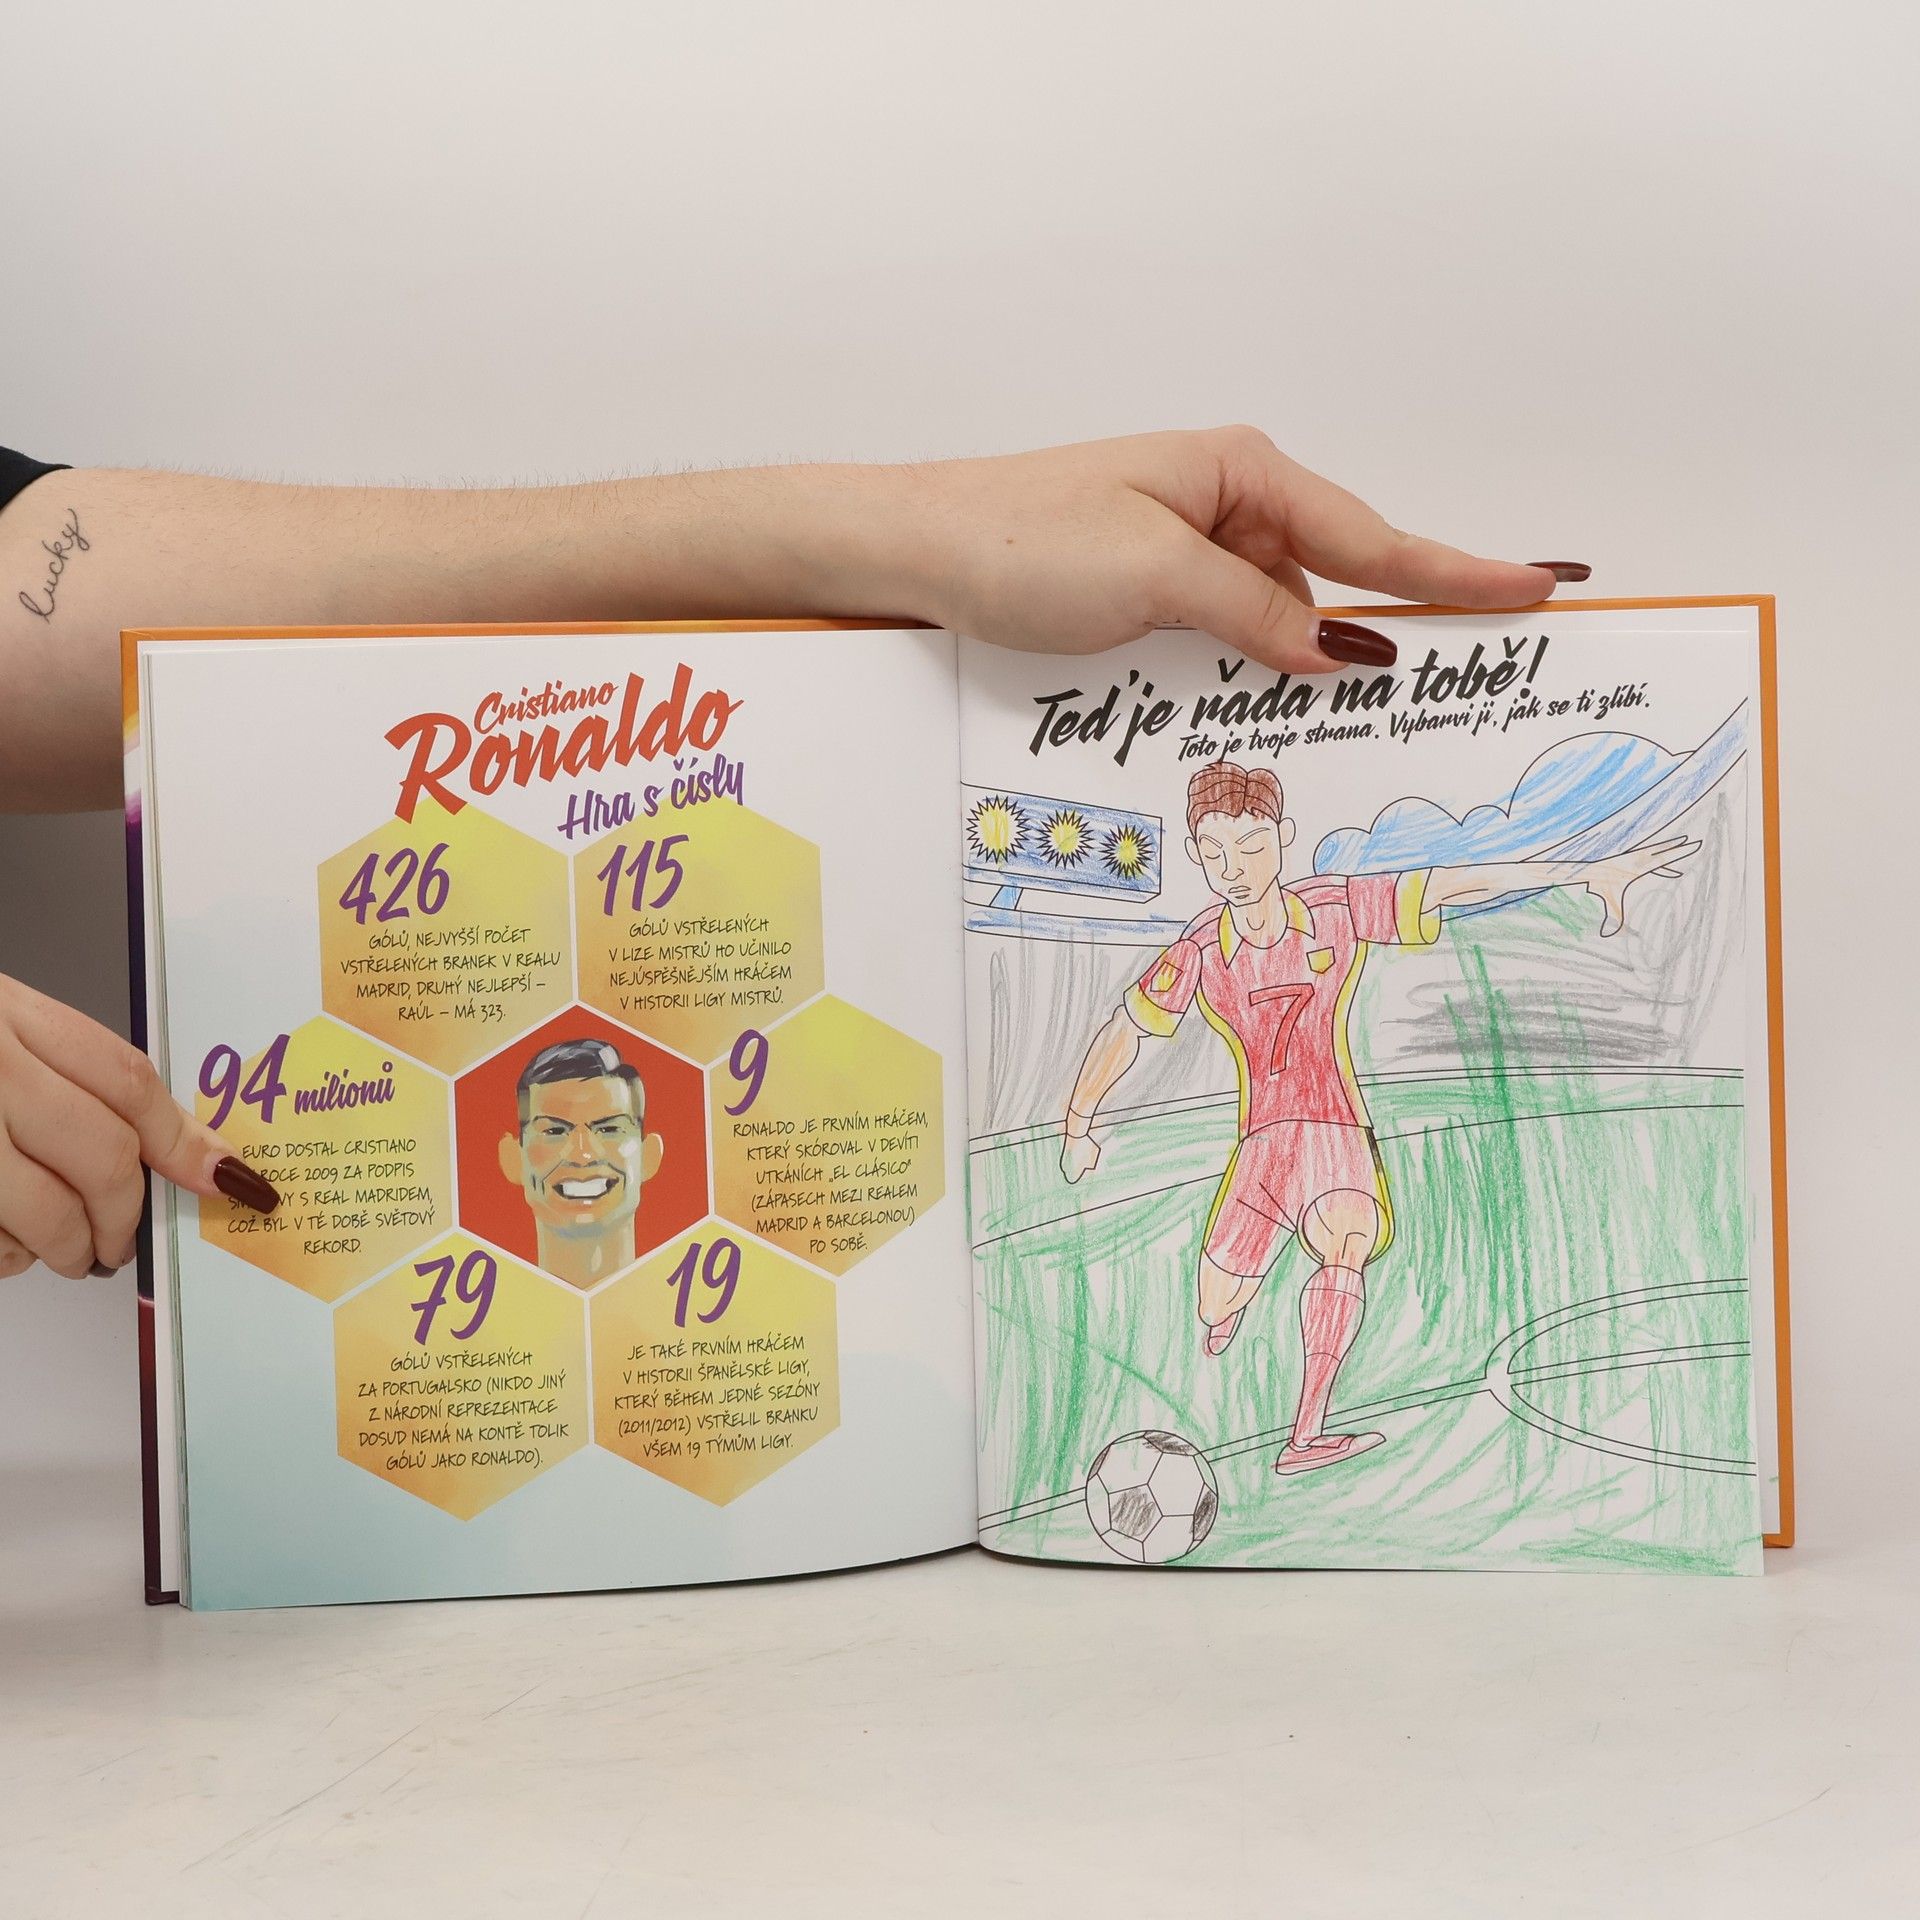 lucky
Cristiano
Ronaldo
Hra s čísly
426
GÓLŮ, NEJVYŠŠÍ POČET
VSTŘELENÝCH BRANEK V REALU
MADRID, DRUHÝ NEJLEPŠÍ –
RAÚL – MÁ 323.
115
GÓLŮ VSTŘELENÝCH
V LIZE MISTRŮ HO UČINILO
NEJÚSPĚŠNĚJŠÍM HRÁČEM
V HISTORII LIGY MISTRŮ.
94 milionů
EURO DOSTAL CRISTIANO
ROCE 2009 ZA PODPIS
S REAL MADRIDEM,
COŽ BYL V TÉ DOBĚ SVĚTOVÝ
REKORD.
9
RONALDO JE PRVNÍM HRÁČEM,
KTERÝ SKÓROVAL V DEVÍTI
UTKÁNÍCH „EL CLÁSICO“
(ZÁPASECH MEZI REALEM
MADRID A BARCELONOU)
PO SOBĚ.
79
GÓLŮ VSTŘELENÝCH
ZA PORTUGALSKO (NIKDO JINÝ
Z NÁRODNÍ REPREZENTACE
DOSUD NEMÁ NA KONTĚ TOLIK
GÓLŮ JAKO RONALDO).
19
JE TAKÉ PRVNÍM HRÁČEM
V HISTORII ŠPANĚLSKÉ LIGY,
KTERÝ BĚHEM JEDNÉ SEZÓNY
(2011/2012) VSTŘELIL BRANKU
VŠEM 19 TÝMŮM LIGY.
Teď je řada na tobě!
Toto je tvoje strana. Vybarvi ji, jak se ti zlíbí.
7